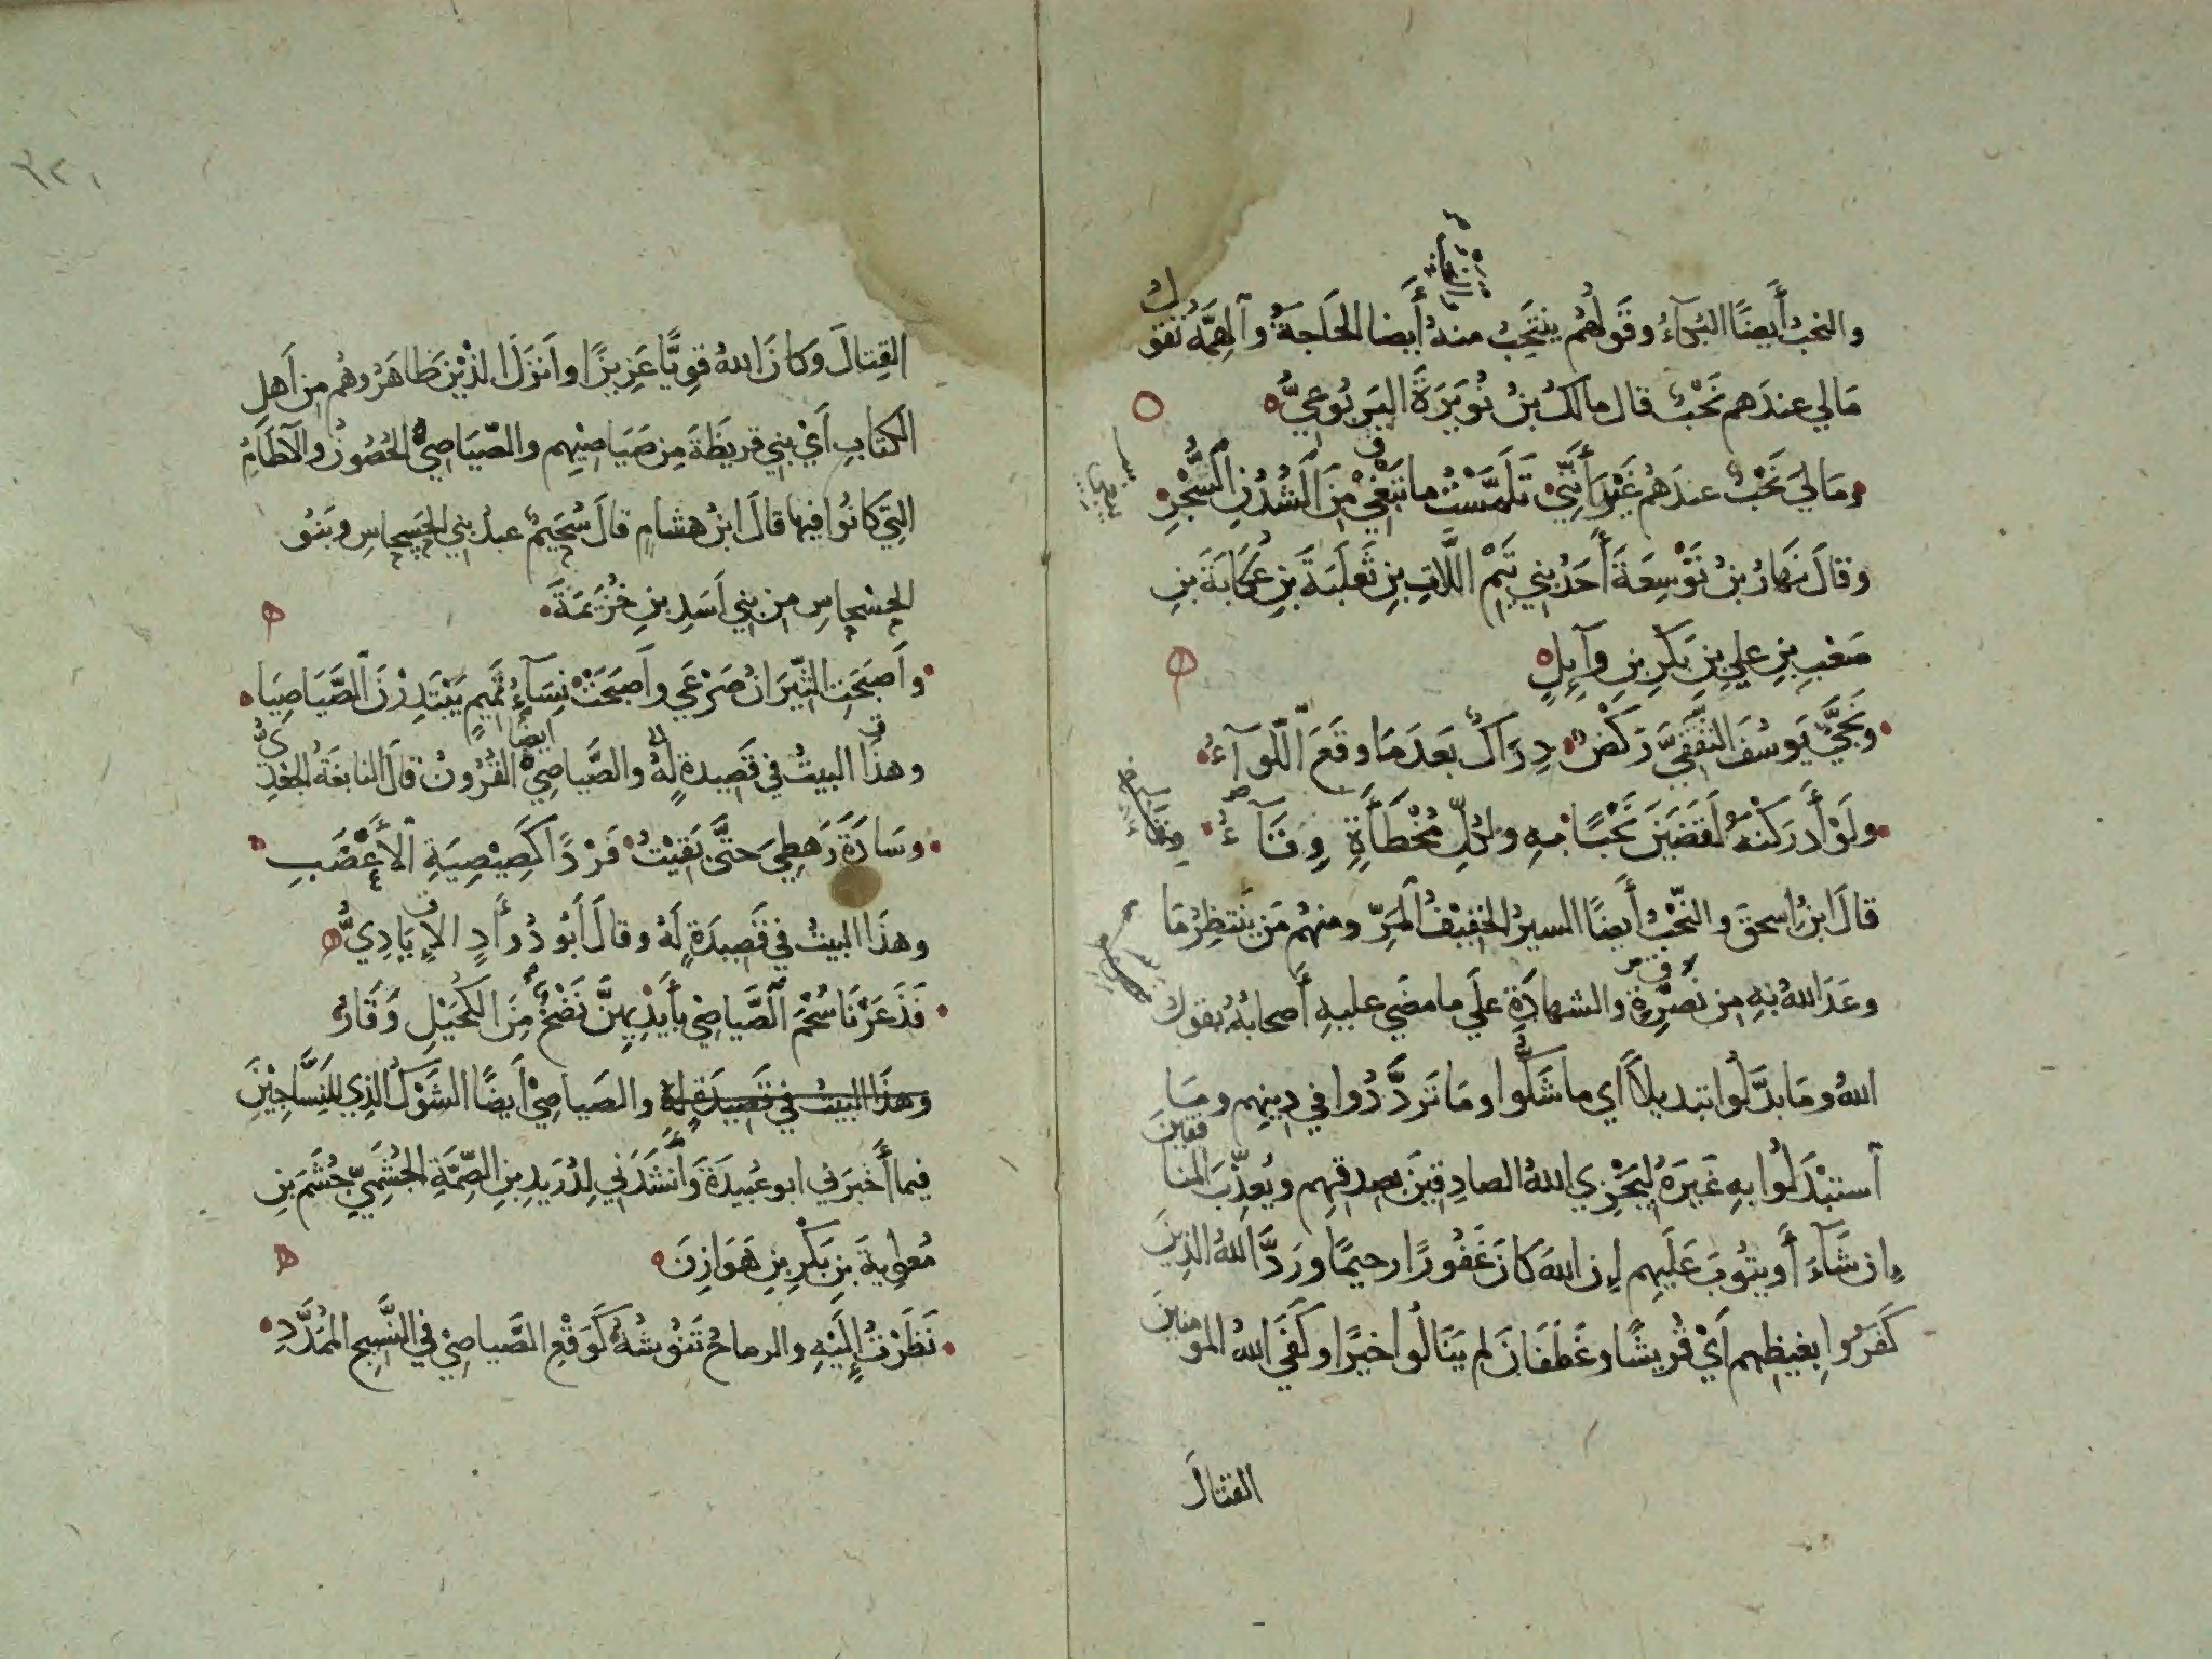 والنحبُ أَيضًا البُكَآءُ وقَولُهُم ينتَحِبُ منهُ أَيضا الحَاجةُ وَٱلهِمَّةُ تقول
مَالي عندَهم نَحْبٌ قال مالكُ بنُ نُوَيرَةَ اليَربُوعيُّ
ومَا ليَ نَحْبٌ عندَهُم غَيرَ أَنَّنِي تَلَمَّسْتُ ما تَبْغي مِنَ ٱلشُدُنِ ٱلشُّجْرِ
وقالَ نَهَارُ بنُ تَوْسِعَةَ أَحَدُ بني تَيْمِ اللَّاتِ بنِ ثَعلَبَةَ بنِ عُكَابَةَ بنِ
صَعْبِ بنِ عليِ بنِ بَكْرِ بنِ وَآئِلٍ
ونَجَّيٰ يَوسُفَ الثَقَفيَّ رَكْضٌ دِرَاكٌ بَعدَ مَا وقَعَ ٱللّوَآءُ
ولَوْ أَدرَكْنَهُ لَقَضَينَ نَحْبًا بِهِ ولِكُلِّ مُخْطَأَةٍ وِقَآءُ
قالَ ابنُ اسحقَ والنَّحْبُ أَيضًا السيرُ الخفيفُ ٱلمَرِّ ومنهُم مَن ينتظِرُ مَا
وعَدَ اللهُ بِهِ مِن نَصْرِهِ والشهادَةِ علَي ما مضَي عليهِ أَصحابُهُ يقول
اللهُ ومَا بدَّلُوا تبديلاً اي ما شَكُّوا ومَا تَردَّدُوا في دِينِهِم ومَا
ٱستبْدَلُوا بهِ غَيرَهُ لِيَجْزِي اللهُ الصادِقينَ بصِدقِهِم ويُعذّبَ المنافقين
إن شَآءَ أَو يتُوبَ عَلَيهِم إن اللهَ كانَ غَفُورًا رحيمًا ورَدَّ اللهُ الذينَ
كَفَرُوا بغيظِهم أَيْ قُريشًا وغَطَفَانَ لم يَنَالُوا خيرًا وكَفَي اللهُ المومنينَ
القتالَ
القِتالَ وَكانَ اللهُ قوِيًّا عَزِيزًا وأَنزَلَ الذْينَ ظاهَرُوهُم مِن أَهلِ
الكتابِ أَيْ بني قريظَةَ مِن صَيَاصيْهِم والصّيَاصِيُّ الحُصُونُ والآطَامُ
التِي كانُوا فيها قالَ ابنُ هشامٍ قالَ سُحَيمٌ عبدُ بني الحَسحاسِ وبَنُو
الحِسْحاسِ مِن بني أَسَدِ بنِ خُزَيمَةَ
وأَصبَحَتِ الثّيرَانُ صَرْعَي وأَصبَحَتْ نِسَآءُ تَميمٍ يَبْتَدِرْنَ ٱلصَّيَاصِيَا
وهذَا البيتُ في قَصِيدةٍ لهُ والصَّياصِيْ أيضًا القُرُونُ قالَ النابغَةُ الجَعْدِيُّ
وسَادَةَ رَهطِيَ حتَّي بَقيْتُ فَرْدًا كَصِيْصِيَةِ ٱلأَعْضَبِ
وهذَا البيتُ في قَصِيدَةٍ لهُ وقالَ أَبُو دُؤَادٍ الإِيَادِيُّ
فَذَعَرْنَا سُحْمَ ٱلصَّياصِي بأَيْدِيهِنَّ نَضْحٌ مِنَ الكُحَيْلِ وَقَارُ
وهذَا البيتُ في قصيدَةٍ لهُ والصَياصِيْ أَيضًا الشَوْكُ الذِي للنَسَّاجِيْنَ
فيما أَخبَرَني ابو عُبيدَةَ وَأَنشَدَني لِدُرَيدِ بنِ الصِّمَّةِ الجُشَمِيِّ جُشَمَ بنِ
مُعٰوِيةَ بنِ بَكْرِ بنِ هَوَازِنَ
نَظَرْتُ إِلَيْهِ والرماحُ تَنُوشُهُ كَوَقْعِ الصَّياصِيْ في النَّسِيجِ المُمَدَّدِ